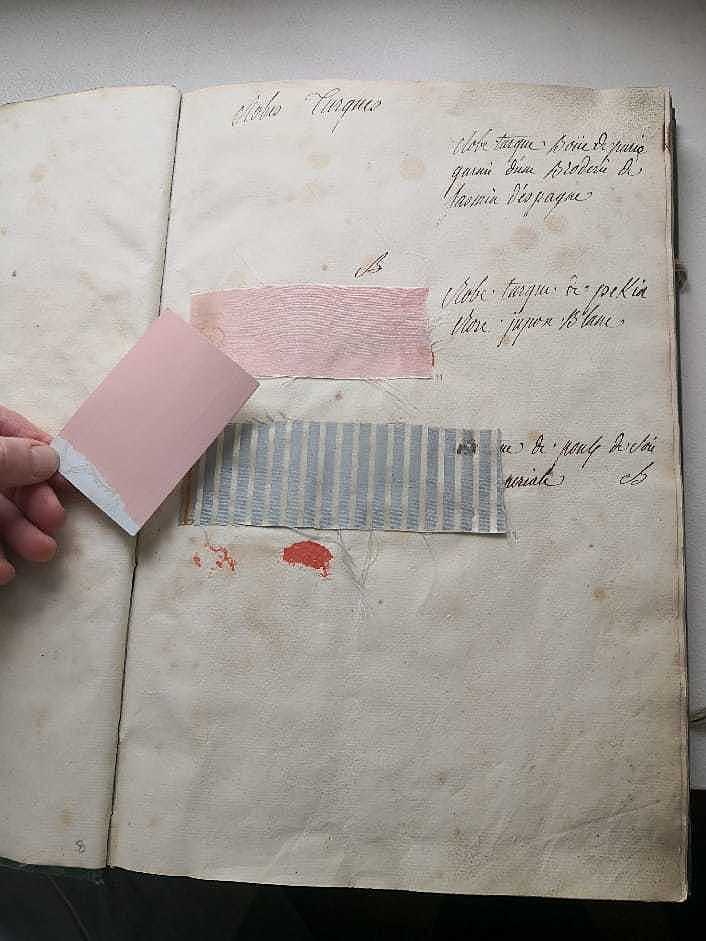 Robes Turques
Robe turque Boue de paris
garnie d'une Broderie de
Jasmin d'espagne
B
Robe turque de pekin
Rose jupon Blanc
ue de poult de Soie
periale B
8